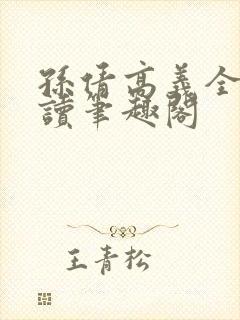 孫倩高義全
讀筆趣閣
王青松